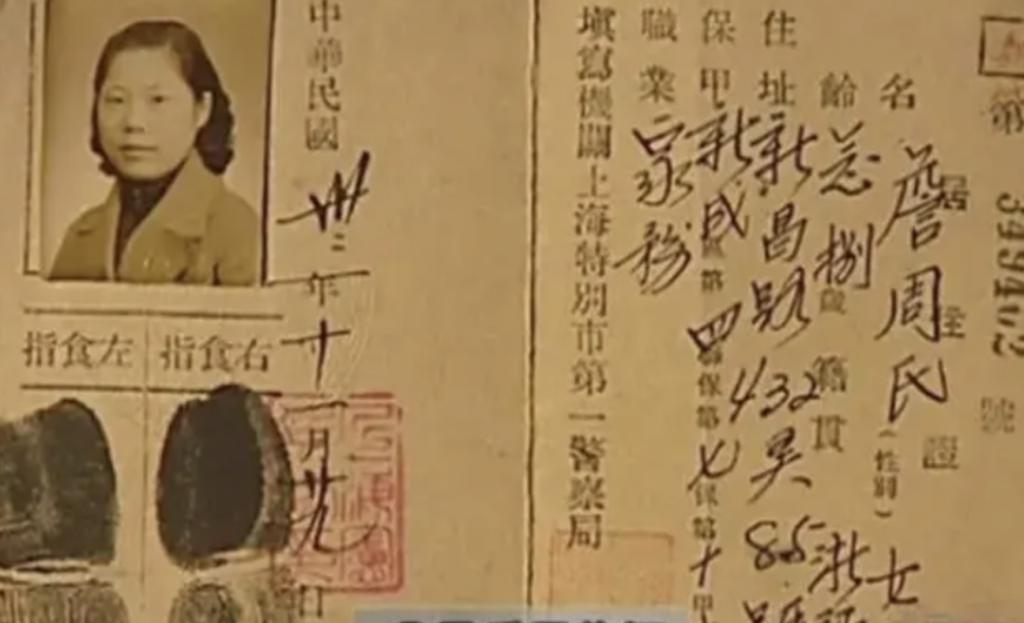 第 號
居住證
名 詹周氏（性別）女
齡 念捌歲 籍貫 浙
住址 新昌路432弄85號
保甲 新成區第四聯保第七保第十甲
職業 家務
填寫機關上海特別市第一警察局
中華民國卅二年十一月廿九日
右食指
左食指